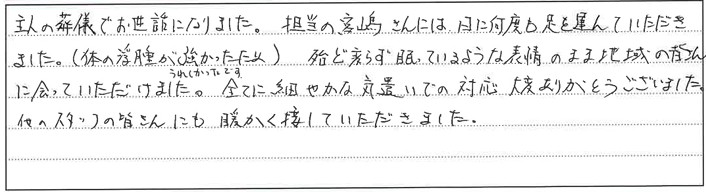 主人の葬儀でお世話になりました。担当の宮嶋さんには、日に何度も足を運んでいただき
ました。(体の浮腫が強かったため) 殆ど変らず眠っているような表情のまま地域の皆さん
に会っていただけました。うれしかったです 全てに細やかな気遣いでの対応 大変ありがとうございました。
他のスタッフの皆さんにも暖かく接していただきました。